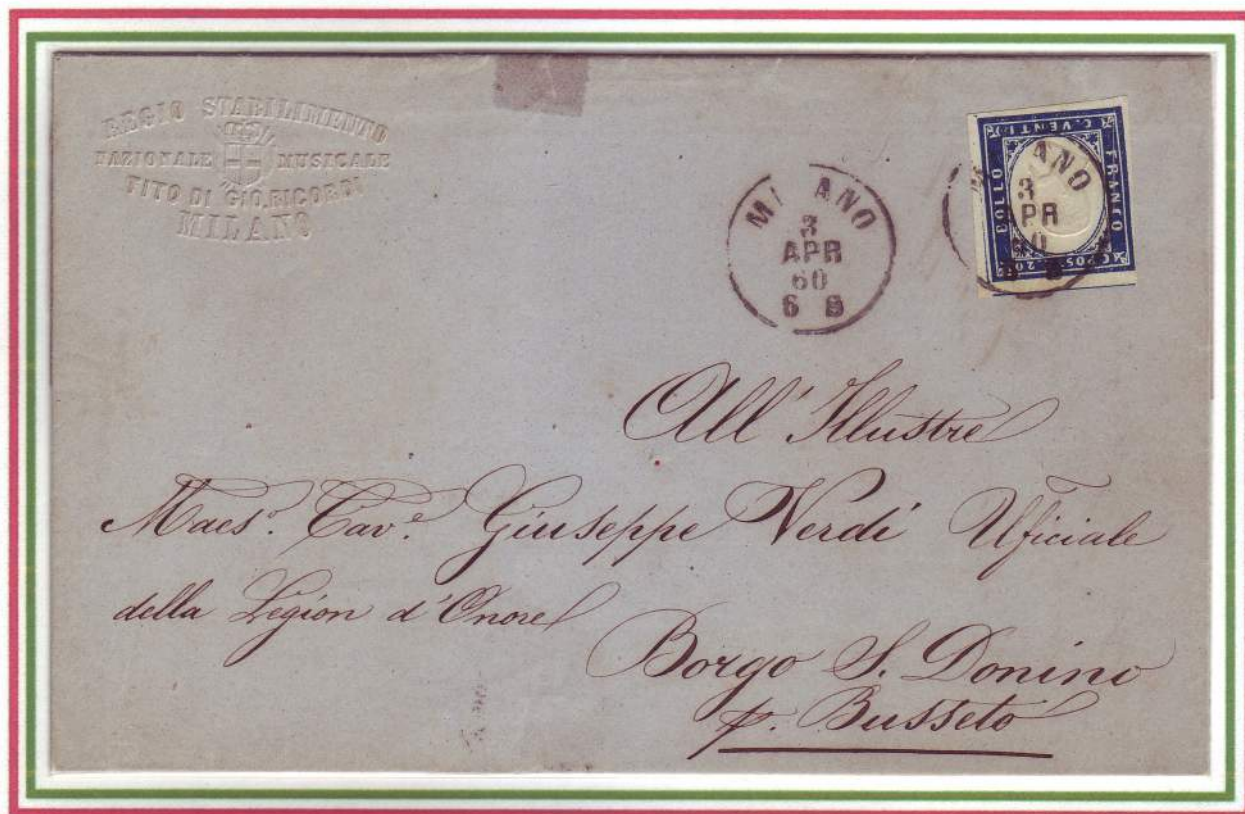 REGIO STABILIMENTO
NAZIONALE MUSICALE
TITO DI GIO. RICORDI
MILANO
MI ANO
3
APR
60
6 S
ANO
3
PR
0
C. VENTI
FRANCO
BOLLO
C POST. 20
All' Illustre
Maes.o Cav.e Giuseppe Verdi Uficiale
della Legion d'Onore
Borgo S. Donino
p. Busseto